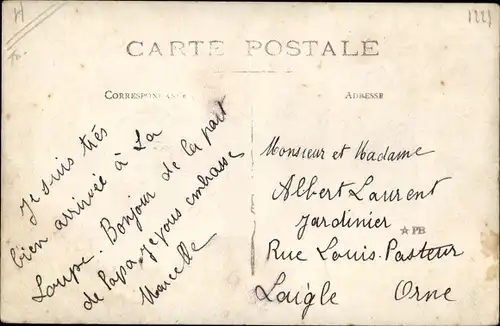 1221
CARTE POSTALE
CORRESPONDANCE
ADRESSE
Je suis très
bien arrivée à La
Loupe. Bonjour de la part
de papa, je vous embrasse
Marcelle
Monsieur et Madame
Albert Laurent
Jardinier
★PB
Rue Louis. Pasteur
Laigle Orne